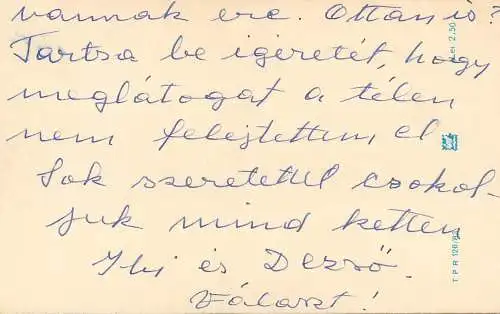 vannak ere. Ottan is?
Tartsa be igéretét, hogy
meglátogat a télen
nem felejtettem el
Sok szeretettel csokol-
juk mind ketten
Ibi és Dezső.
Választ!
Lei 2,50
T P R 126/82